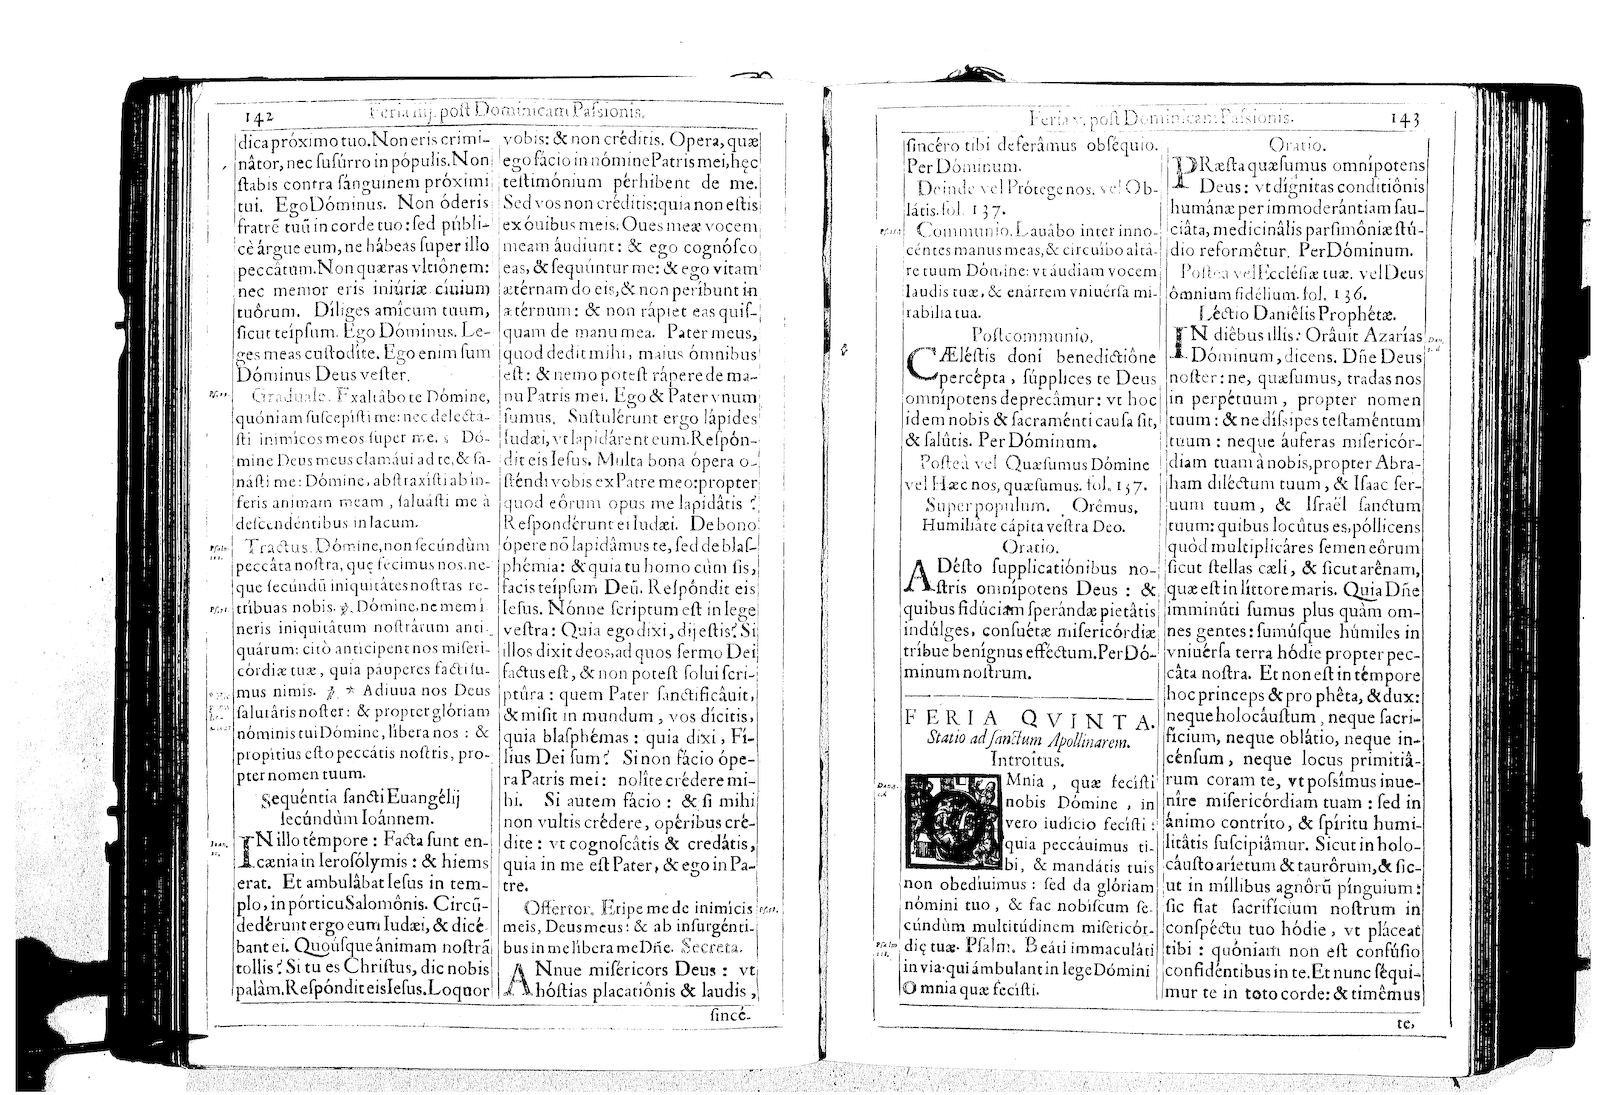 142
Feria iiij. post Dominicam Passionis.
dica próximo tuo. Non eris crimi-
nâtor, nec ſuſúrro in pópulis. Non
ſtabis contra ſánguinem próximi
tui. Ego Dóminus. Non óderis
fratrẽ tuũ in corde tuo: ſed públi-
cè árgue eum, ne hábeas ſuper illo
peccátum. Non quæras vltiônem:
nec memor eris iniúriæ cíuium
tuôrum. Díliges amîcum tuum,
ſicut teípſum. Ego Dóminus. Le-
ges meas cuſtodîte. Ego enim ſum
Dóminus Deus veſter.
Graduale. Exaltábo te Dómine,
quóniam ſuſcepíſti me: nec delectá-
ſti inimîcos meos ſuper me. Dó-
mine Deus meus clamáui ad te, & ſa-
náſti me: Dómine, abſtraxíſti ab in-
feris animam meam, ſaluáſti me à
deſcendéntibus in lacum.
Tractus. Dómine, non ſecúndùm
peccâta noſtra, quę fecimus nos. ne-
que ſecúndũ iniquitâtes noſtras re-
tríbuas nobis. ℣. Dómine, ne memí
neris iniquitâtum noſtrârum anti-
quárum: citò antícipent nos miſeri-
córdiæ tuæ, quia páuperes facti ſu-
mus nimis. ℣. * Adiuua nos Deus
ſalutâris noſter: & propter glóriam
nóminis tui Dómine, líbera nos: &
propítius eſto peccátis noſtris, pro-
pter nomen tuum.
Sequéntia ſancti Euangélij
ſecúndùm Ioánnem.
IN illo témpore: Facta ſunt en-
cænia in Ieroſólymis: & hiems
erat. Et ambulâbat Ieſus in tem-
plo, in pórticu Salomônis. Circũ-
dedérunt ergo eum Iudæi, & dicé
bant ei. Quoúſque ánimam noſtrã
tollis? Si tu es Chriſtus, dic nobis
palàm. Reſpóndit eis Ieſus. Loquor
vobis: & non créditis. Opera, quæ
ego fácio in nómine Patris mei, hęc
teſtimónium pérhibent de me.
Sed vos non créditis: quia non eſtis
ex óuibus meis. Oues meæ vocem
meam áudiunt: & ego cognóſco
eas, & ſequúntur me: & ego vitam
ætérnam do eis, & non períbunt in
ætérnum: & non rápiet eas quiſ-
quam de manu mea. Pater meus,
quod dedit mihi, maius ómnibus
eſt: & nemo poteſt rápere de ma-
nu Patris mei. Ego & Pater vnum
ſumus. Suſtulérunt ergo lápides
Iudæi, vt lapidárent eum. Reſpón-
dit eis Ieſus. Multa bona ópera o-
ſténdi vobis ex Patre meo: propter
quod eôrum opus me lapidâtis?
Reſpondérunt ei Iudæi. De bono
ópere nõ lapidâmus te, ſed de blaſ-
phémia: & quia tu homo cùm ſis,
facis teípſum Deũ. Reſpóndit eis
Ieſus. Nónne ſcriptum eſt in lege
veſtra: Quia ego dixi, dij eſtis? Si
illos dixit deos, ad quos ſermo Dei
factus eſt, & non poteſt ſolui ſcri-
ptûra: quem Pater ſanctificâuit,
& miſit in mundum, vos dícitis,
quia blaſphémas: quia dixi, Fí-
lius Dei ſum? Si non fácio ópe-
ra Patris mei: nolîte crédere mi-
hi. Si autem fácio: & ſi mihi
non vultis crédere, opéribus cré-
dite: vt cognoſcâtis & credâtis,
quia in me eſt Pater, & ego in Pa-
tre.
Offertor. Eripe me de inimîcis
meis, Deus meus: & ab inſurgénti-
bus in me líbera me Dñe. Secreta.
ANnue miſéricors Deus: vt
hóſtias placatiônis & laudis,
ſincé-
Feria v. post Dominicam Passionis.
143
ſincéro tibi deferâmus obſéquio.
Per Dóminum.
Deinde vel Prótege nos. vel Ob-
látis. fol. 137.
Communio. Lauábo inter inno-
céntes manus meas, & circuíbo altâ-
re tuum Dómine: vt áudiam vocem
laudis tuæ, & enárrem vniuérſa mi-
rabília tua.
Poſtcommunio.
CÆléſtis doni benedictiône
percépta, ſúpplices te Deus
omnípotens deprecâmur: vt hoc
idem nobis & ſacraménti cauſa ſit,
& ſalûtis. Per Dóminum.
Poſteà vel Quæſumus Dómine
vel Hæc nos, quæſumus. fol. 137.
Super populum. Orêmus.
Humiliâte cápita veſtra Deo.
Oratio.
ADéſto ſupplicatiónibus no-
ſtris omnípotens Deus: &
quibus fidúciam ſperándæ pietâtis
indúlges, conſuétæ miſericórdiæ
tríbue benígnus efféctum. Per Dó-
minum noſtrum.
FERIA QVINTA.
Statio ad ſanctum Apollinarem.
Introîtus.
OMnia, quæ feciſti
nobis Dómine, in
vero iudício feciſti:
quia peccáuimus ti-
bi, & mandátis tuis
non obedíuimus: ſed da glóriam
nómini tuo, & fac nobíſcum ſe-
cúndùm multitúdinem miſericór-
dię tuæ. Pſalm. Beáti immaculáti
in via: qui ámbulant in lege Dómini
Omnia quæ feciſti.
Oratio.
PRæſta quæſumus omnípotens
Deus: vt dígnitas conditiônis
humánæ per immoderántiam ſau-
ciâta, medicinâlis parſimôniæ ſtú-
dio reformêtur. Per Dóminum.
Poſteà vel Eccléſiæ tuæ. vel Deus
ómnium fidélium. fol. 136.
Léctio Daniêlis Prophétæ.
IN diêbus illis: Orâuit Azarías
Dóminum, dicens. Dñe Deus
noſter: ne, quæſumus, tradas nos
in perpétuum, propter nomen
tuum: & ne díſsipes teſtaméntum
tuum: neque áuferas miſericór-
diam tuam à nobis, propter Abra-
ham diléctum tuum, & Iſaac ſer-
uum tuum, & Iſraël ſanctum
tuum: quibus locûtus es, póllicens
quòd multiplicáres ſemen eôrum
ſicut ſtellas cæli, & ſicut arênam,
quæ eſt in líttore maris. Quia Dñe
imminúti ſumus plus quàm om-
nes gentes: ſumúſque húmiles in
vniuérſa terra hódie propter pec-
câta noſtra. Et non eſt in témpore
hoc princeps & prophêta, & dux:
neque holocáuſtum, neque ſacri-
fícium, neque oblátio, neque in-
cénſum, neque locus primitiâ-
rum coram te, vt poſsímus inue-
nîre miſericórdiam tuam: ſed in
ánimo contríto, & ſpíritu humi-
litâtis ſuſcipiâmur. Sicut in holo-
cáuſto aríetum & taurôrum, & ſic-
ut in míllibus agnôrũ pínguium:
ſic fiat ſacrifícium noſtrum in
conſpéctu tuo hódie, vt pláceat
tibi: quóniam non eſt confúſio
confidéntibus in te. Et nunc ſéqui-
mur te in toto corde: & timêmus
te,